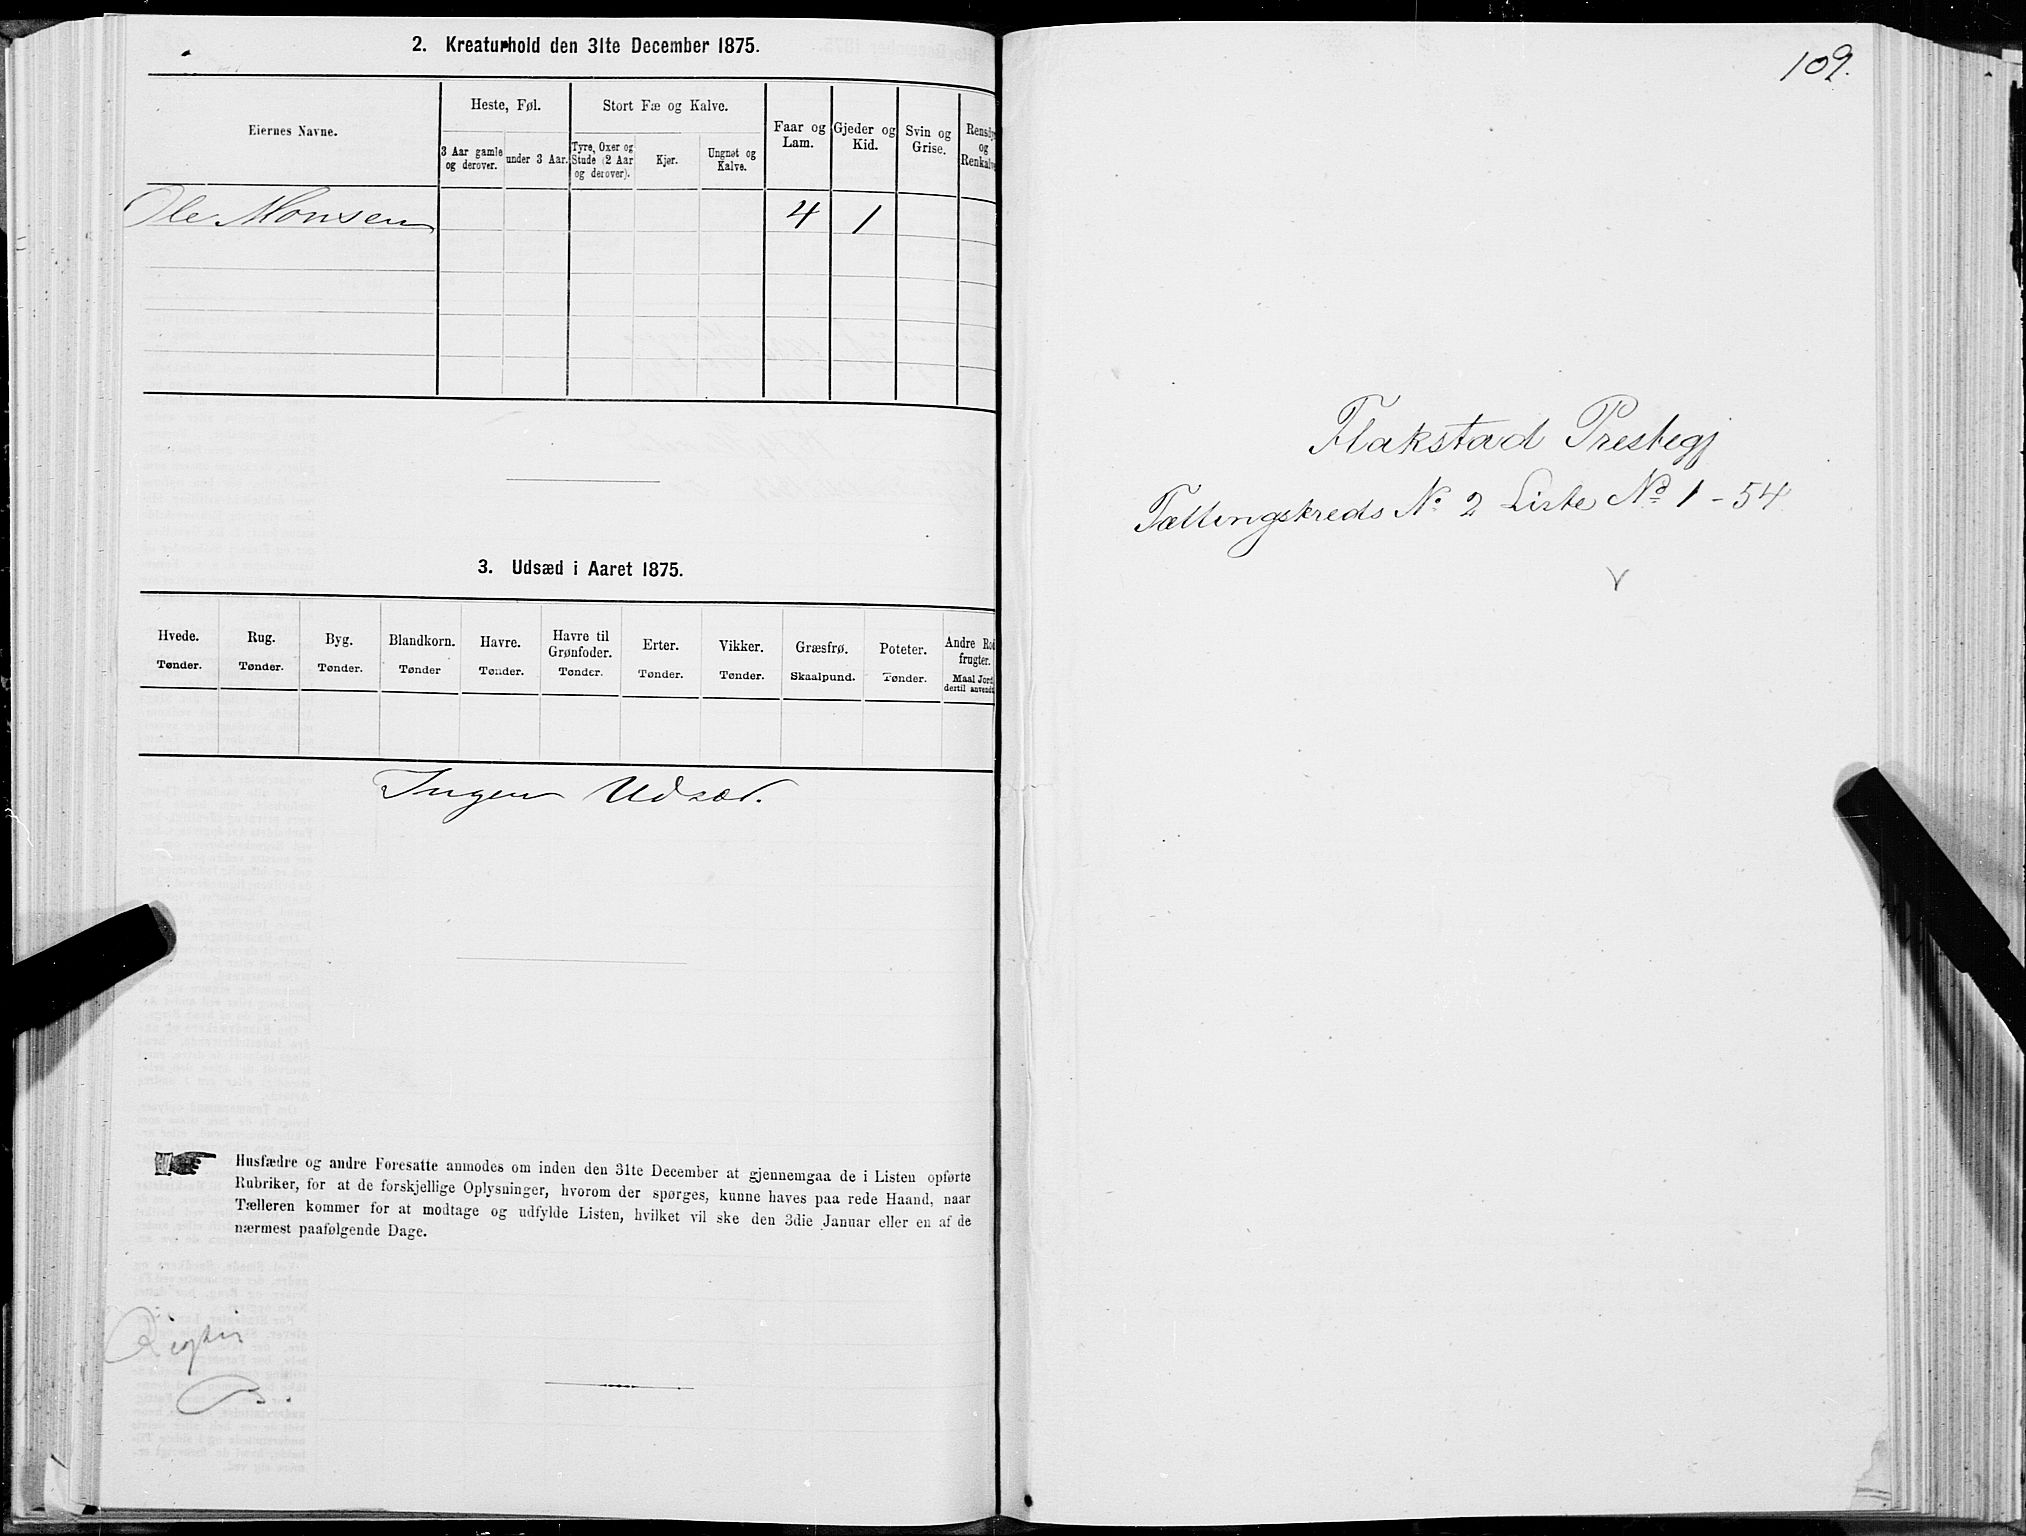 2. Kreaturhold den 31te December 1875.
Eiernes Navne.
Heste, Føl.
Stort Fæ og Kalve.
Faar og
Lam.
Gjeder og
Kid.
Svin og
Grise.
Rensdyr
og
Renkalve
3 Aar gamle
og derover.
under 3 Aar.
Tyre, Oxer og
Stude (2 Aar
og derover).
Kjør.
Ungnøt og
Kalve.
Ole Monsen 4 1
3. Udsæd i Aaret 1875.
Hvede. Rug. Byg. Blandkorn. Havre. Havre til Grønfoder. Erter. Vikker. Græsfrø. Poteter. Andre Rod frugter.
Tønder. Tønder. Tønder. Tønder Tønder. Tønder. Tønder. Tønder. Skaalpund. Tønder. Maal Jord dertil anvendt
Ingen Udsæd.
Husfædre og andre Foresatte anmodes om inden den 31te December at gjennemgaa de i Listen opførte
Rubriker, for at de forskjellige Oplysninger, hvorom der spørges, kunne haves paa rede Haand, naar
Tælleren kommer for at modtage og udfylde Listen, hvilket vil ske den 3die Januar eller en af de
nærmest paafølgende Dage.
109.
Flakstad Prestegj
Tællingskreds No 2 Liste No 1-54